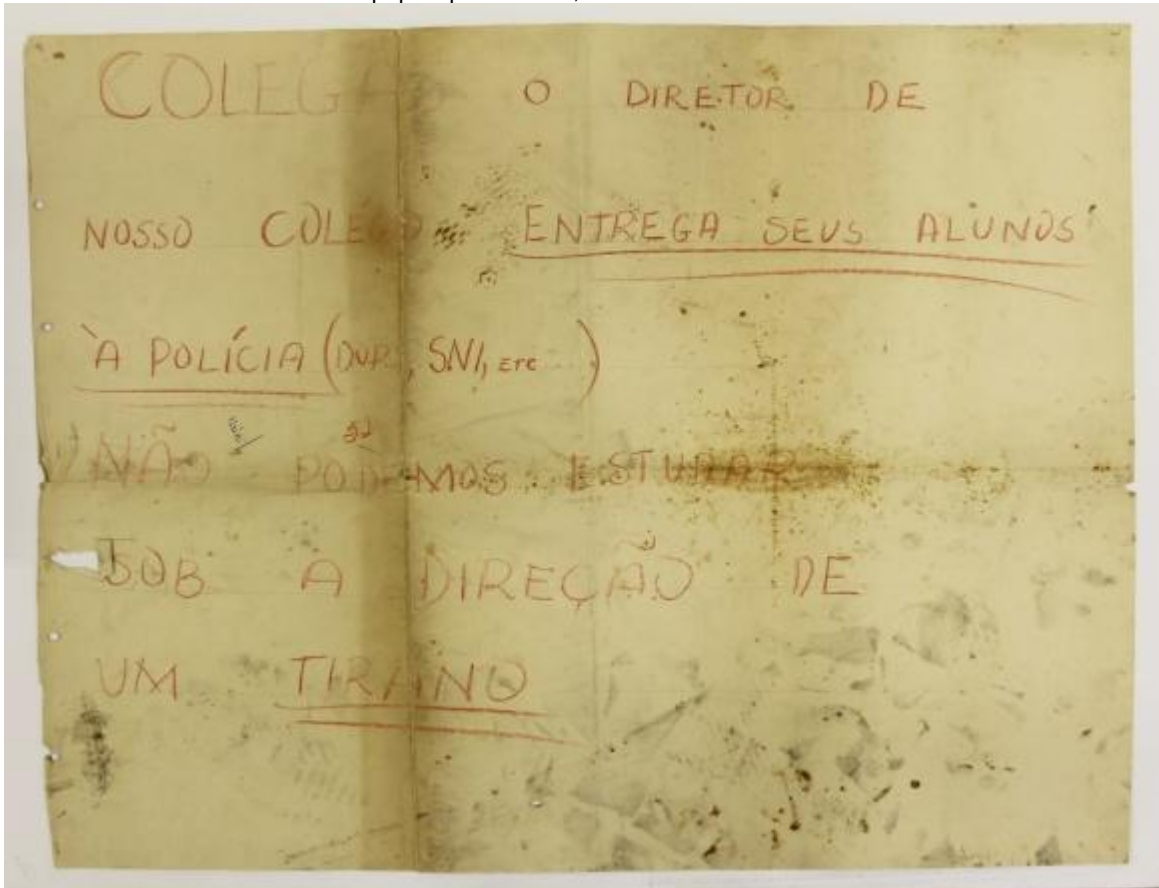 COLEGA O DIRETOR DE
NOSSO COLÉGIO ENTREGA SEUS ALUNOS
À POLÍCIA (DOPS, SNI, ETC...)
NÃO PODEMOS ESTUDAR
SOB A DIREÇÃO DE
UM TIRANO